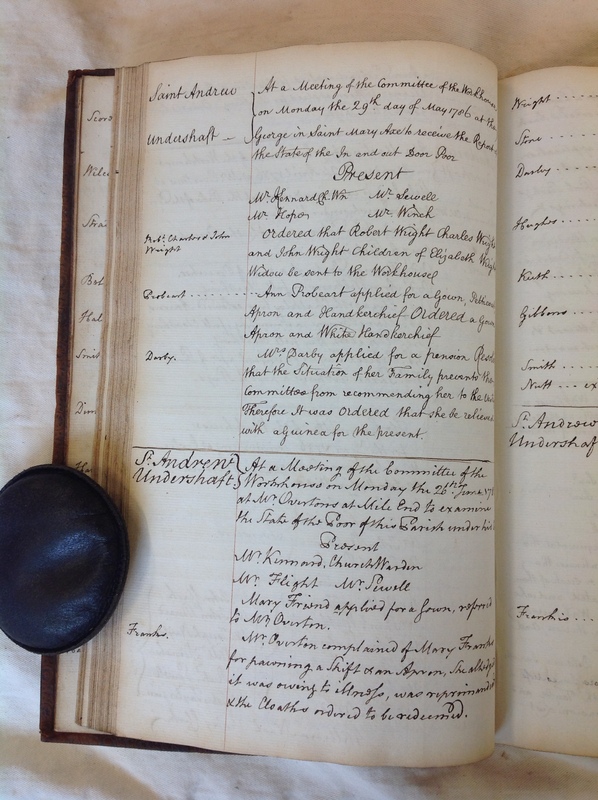 Saint Andrew
Undershaft
At a Meeting of the Committee of the Workhouse
on Monday the 29th day of May 1786 at the
George in Saint Mary Axe to receive the Report
the State of the In and out Door Poor
Present
Mr. Kennard Ch. Wn Mr. Sewell
Mr. Hopes Mr. Winch
Robt. Charles & John
Wright
Ordered that Robert Wright Charles Wright
and John Wright Children of Elizabeth Wright
Widow be sent to the Workhouse
Probeart ........ Ann Probeart applied for a Gown, Petticoat
Apron and Handkerchief Ordered a Gown
Apron and White Handkerchief
Darby. Mrs. Darby applied for a pension
that the Situation of her Family prevents the
Committee from recommending her to the
Therefore It was Ordered that she be relieved
with a Guinea for the present.
St. Andrew
Undershaft
At a Meeting of the Committee of the
Workhouse on Monday the 26th June
at Mr. Overtons at Mile End to examine
the State of the Poor of this Parish under his
Present
Mr. Kennard, Church Warden
Mr. Flight Mr. Sewell
Mary Friend applied for a Gown, referred
to Mr. Overton.
Franks. Mr. Overton complained of Mary Franks
for pawning a Shift & an Apron, She alledged
it was owing to illness, was reprimanded
& the Cloaths ordered to be redeemed.
Wright ....
Stone ....
Darby ....
Hughes ....
Keith ....
Gibbons ....
Smith ....
Nutt ... ex
St. Andrew
Undershaf
Franks ...